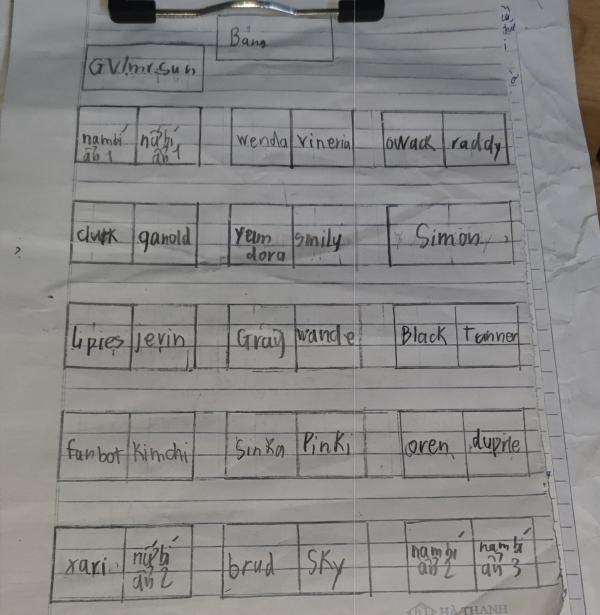 Bảng
GV/mr.sun
nam bí ẩn 1 nữ bí ẩn 1 wenda vineria owack raddy
clurk ganold yeim dora smily Simon
lipies jevin Gray wande Black Tunner
funbot kimchi Sinka Pinki oren duple
xari nữ bí ẩn 2 brud SKy nam bí ẩn 2 nam bí ẩn 3
HÀ THANH